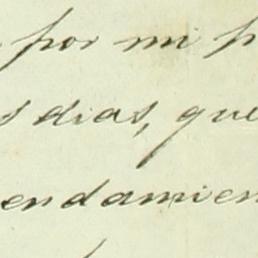 por mi p
s dias, que
endamien